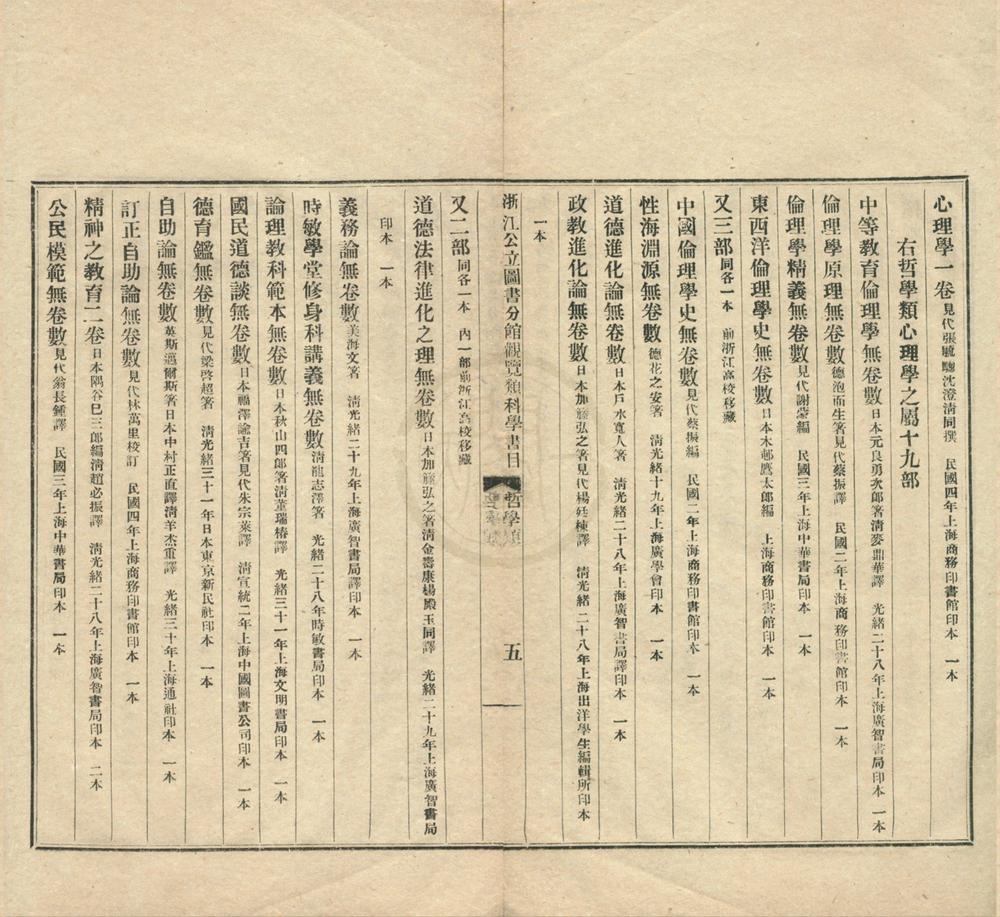 心理學一卷見代張毓驄沈澄淸同撰 民國四年上海商務印書館印本 一本
右哲學類心理學之屬十九部
中等敎育倫理學無卷數日本元良勇次郞箸淸麥鼎華譯 光緖二十八年上海廣智書局印本 一本
倫理學原理無卷數德泡而生箸見代蔡振譯 民國二年上海商務印書館印本 一本
倫理學精義無卷數見代謝蒙編 民國三年上海中華書局印本 一本
東西洋倫理學史無卷數日本木邨鷹太郞編 上海商務印書館印本 一本
又三部同各一本 前浙江高校移藏
中國倫理學史無卷數見代蔡振編 民國二年上海商務印書館印本 一本
性海淵源無卷數德花之安箸 淸光緖十九年上海廣學會印本 一本
道德進化論無卷數日本戶水寬人箸 淸光緖二十八年上海廣智書局譯印本 一本
政敎進化論無卷數日本加藤弘之箸見代楊廷棟譯 淸光緖二十八年上海出洋學生編輯所印本
一本
浙江公立圖書分館觀覽類科學書目 哲學類 五
又二部同各一本 內一部前浙江高校移藏
道德法律進化之理無卷數日本加藤弘之箸淸金壽康楊殿玉同譯 光緖二十九年上海廣智書局
印本 一本
義務論無卷數美海文箸 淸光緖二十九年上海廣智書局譯印本 一本
時敏學堂修身科講義無卷數淸龍志澤箸 光緖二十八年時敏書局印本 一本
論理敎科範本無卷數日本秋山四郞箸淸董瑞椿譯 光緖三十一年上海文明書局印本 一本
國民道德談無卷數日本福澤諭吉箸見代朱宗萊譯 淸宣統二年上海中國圖書公司印本 一本
德育鑑無卷數見代梁啓超箸 淸光緖三十一年日本東京新民社印本 一本
自助論無卷數英斯邁爾斯箸日本中村正直譯淸羊杰重譯 光緖三十年上海通社印本 一本
訂正自助論無卷數見代林萬里校訂 民國四年上海商務印書館印本 一本
精神之敎育二卷日本隅谷巳三郞編淸趙必振譯 淸光緖二十八年上海廣智書局印本 二本
公民模範無卷數見代翁長鍾譯 民國三年上海中華書局印本 一本